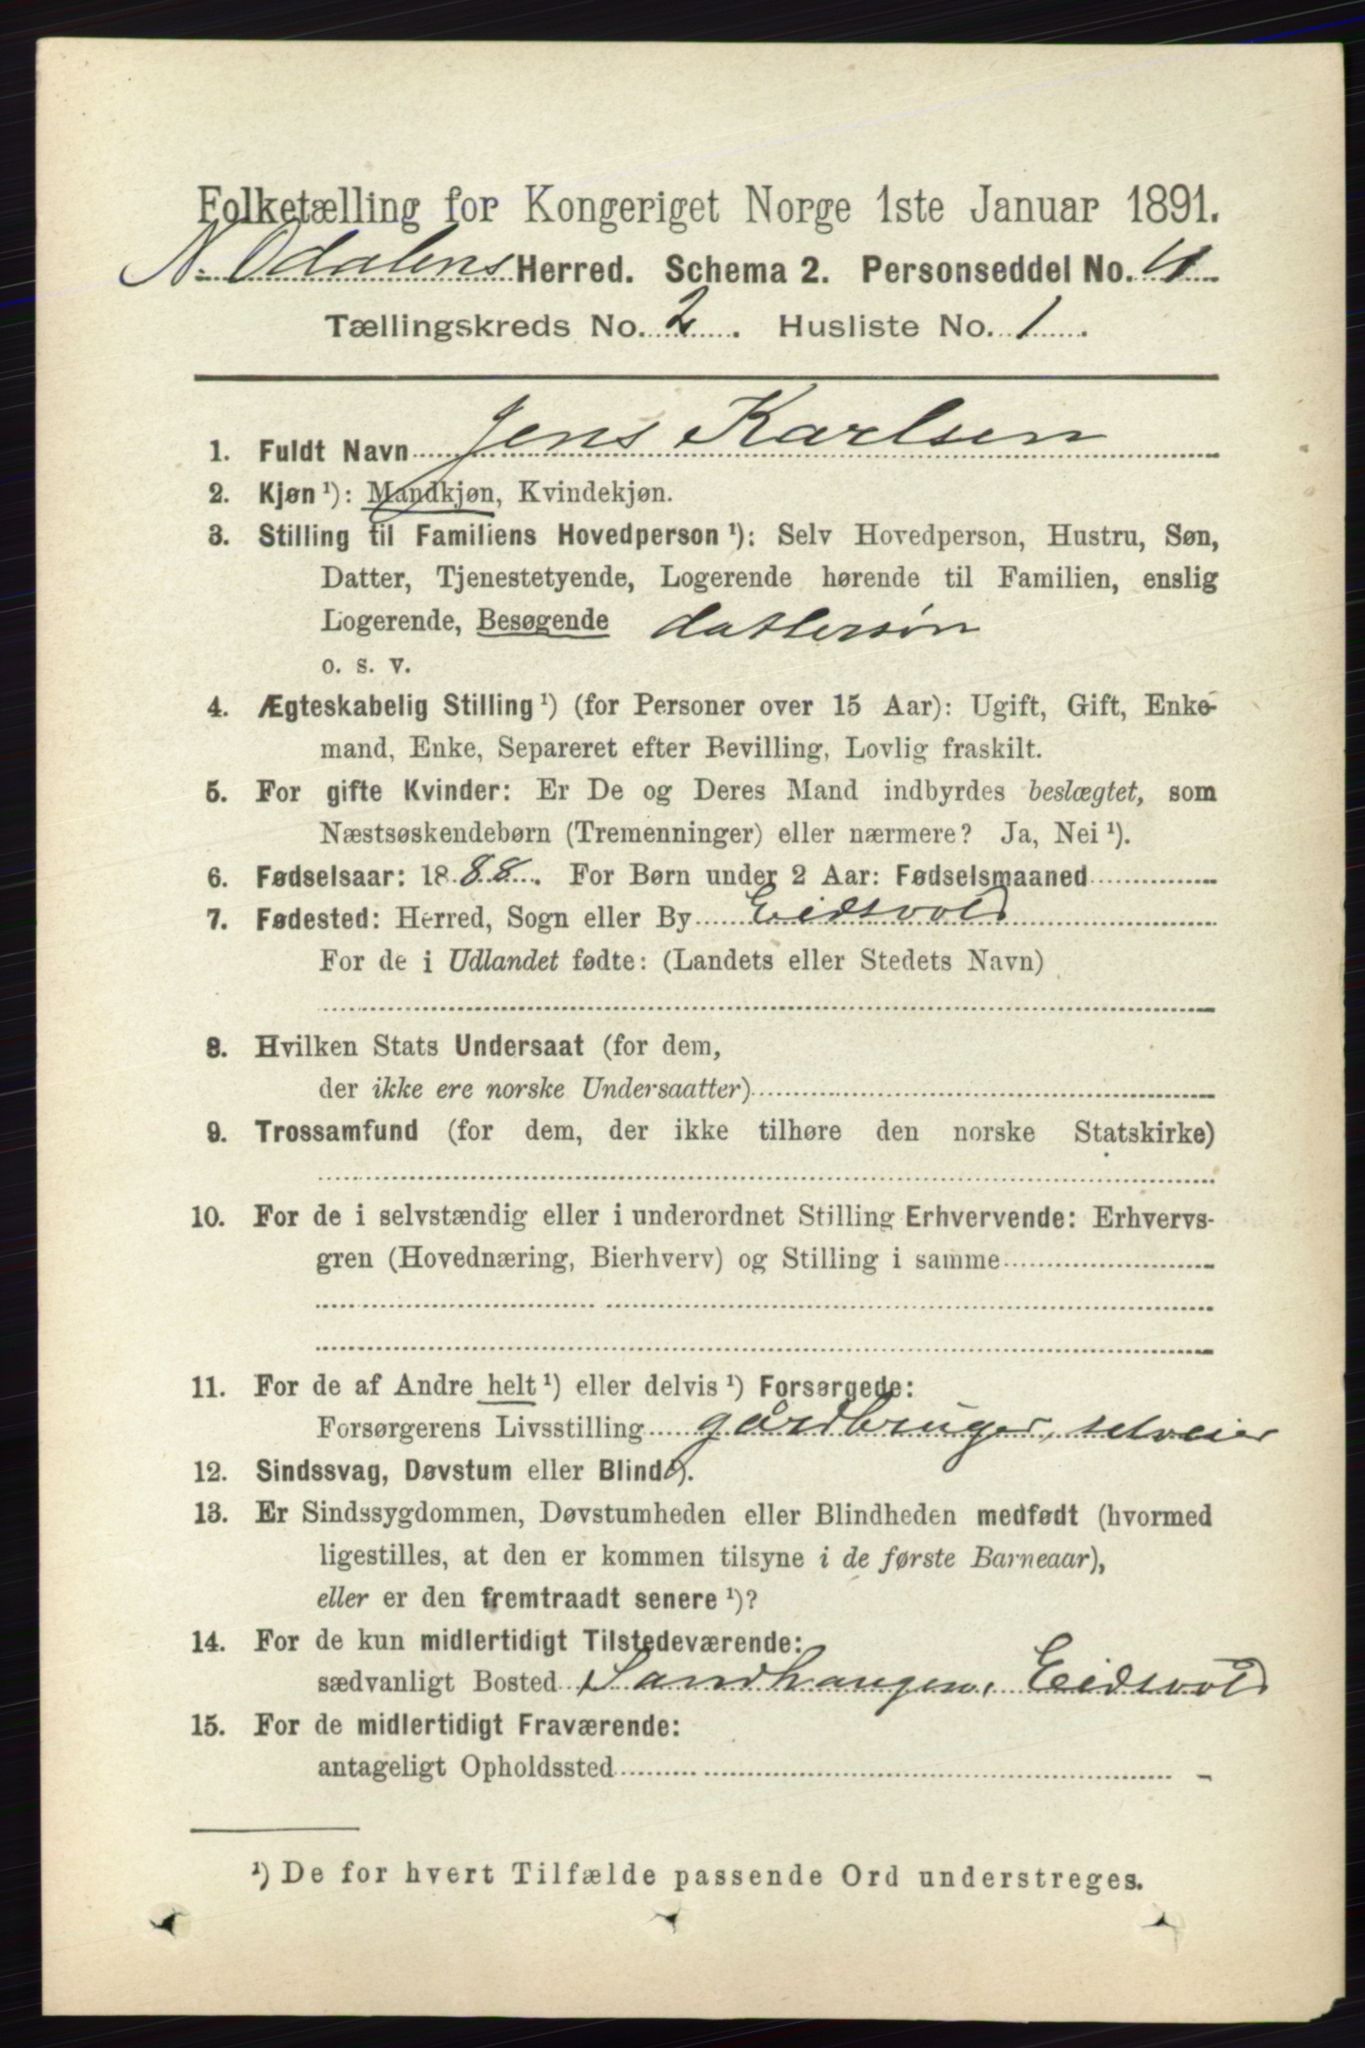 Folketælling for Kongeriget Norge 1ste Januar 1891.
N. Odalens Herred. Schema 2. Personseddel No. 11
Tællingskreds No. 2. Husliste No. 1.
1. Fuldt Navn Jens Karlsen
2. Kjøn ¹): Mandkjøn, Kvindekjøn.
3. Stilling til Familiens Hovedperson ¹): Selv Hovedperson, Hustru, Søn,
Datter, Tjenestetyende, Logerende hørende til Familien, enslig
Logerende, Besøgende dattersøn
o. s. v.
4. Ægteskabelig Stilling ¹) (for Personer over 15 Aar): Ugift, Gift, Enke-
mand, Enke, Separeret efter Bevilling, Lovlig fraskilt.
5. For gifte Kvinder: Er De og Deres Mand indbyrdes beslægtet, som
Næstsøskendebørn (Tremenninger) eller nærmere? Ja, Nei ¹).
6. Fødselsaar: 1888. For Børn under 2 Aar: Fødselsmaaned
7. Fødested: Herred, Sogn eller By Eidsvold
For de i Udlandet fødte: (Landets eller Stedets Navn)
8. Hvilken Stats Undersaat (for dem,
der ikke ere norske Undersaatter)
9. Trossamfund (for dem, der ikke tilhøre den norske Statskirke)
10. For de i selvstændig eller i underordnet Stilling Erhvervende: Erhvervs-
gren (Hovednæring, Bierhverv) og Stilling i samme
11. For de af Andre helt ¹) eller delvis ¹) Forsørgede:
Forsørgerens Livsstilling gårdbruger, selveier
12. Sindssvag, Døvstum eller Blind ¹).
13. Er Sindssygdommen, Døvstumheden eller Blindheden medfødt (hvormed
ligestilles, at den er kommen tilsyne i de første Barneaar),
eller er den fremtraadt senere ¹)?
14. For de kun midlertidigt Tilstedeværende:
sædvanligt Bosted Sandhaugen, Eidsvold
15. For de midlertidigt Fraværende:
antageligt Opholdssted
¹) De for hvert Tilfælde passende Ord understreges.